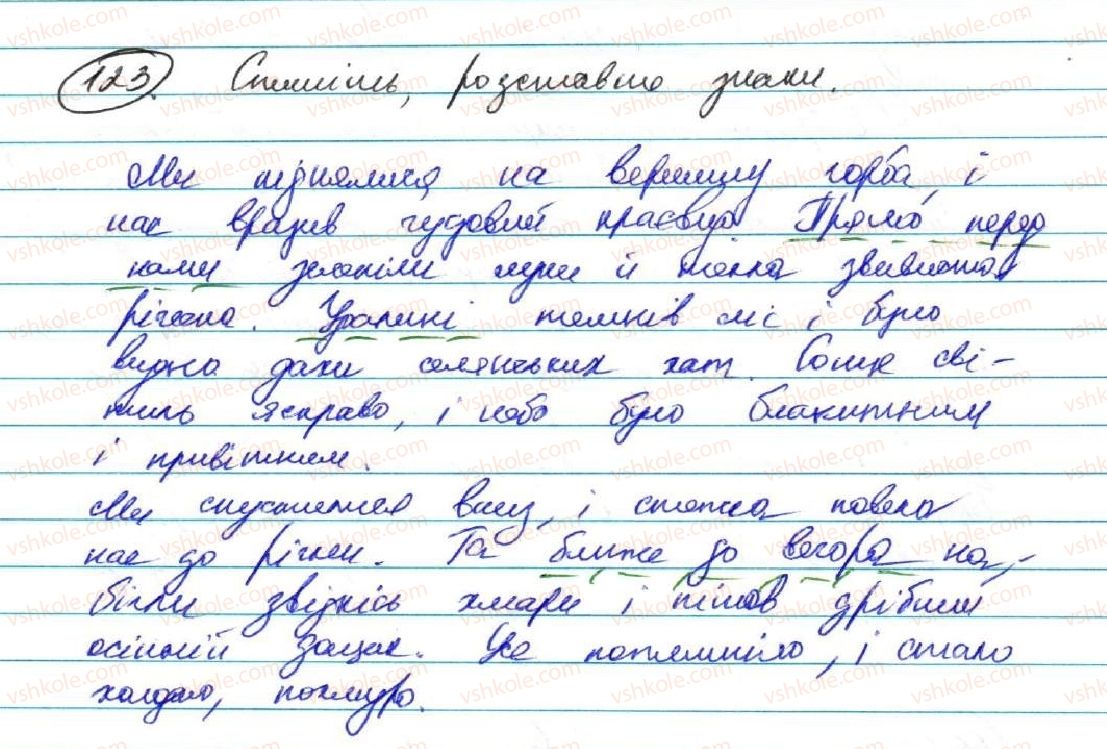 123. Спишіть, розставте знаки.
Ми піднялися на вершину горба, і
нас вразив чудовий краєвид. Прямо перед
нами зеленіли луки й текла звивиста
річечка. Удалині темнів ліс і було
видно дахи селянських хат. Сонце сві-
тить яскраво, і небо було блакитним
і привітним.
Ми спустилися вниз, і стежка повела
нас до річки. Та ближче до вечора на-
бігли звідкісь хмари і пішов дрібний
осінній дощик. Усе потемніло, і стало
холодно, похмуро.